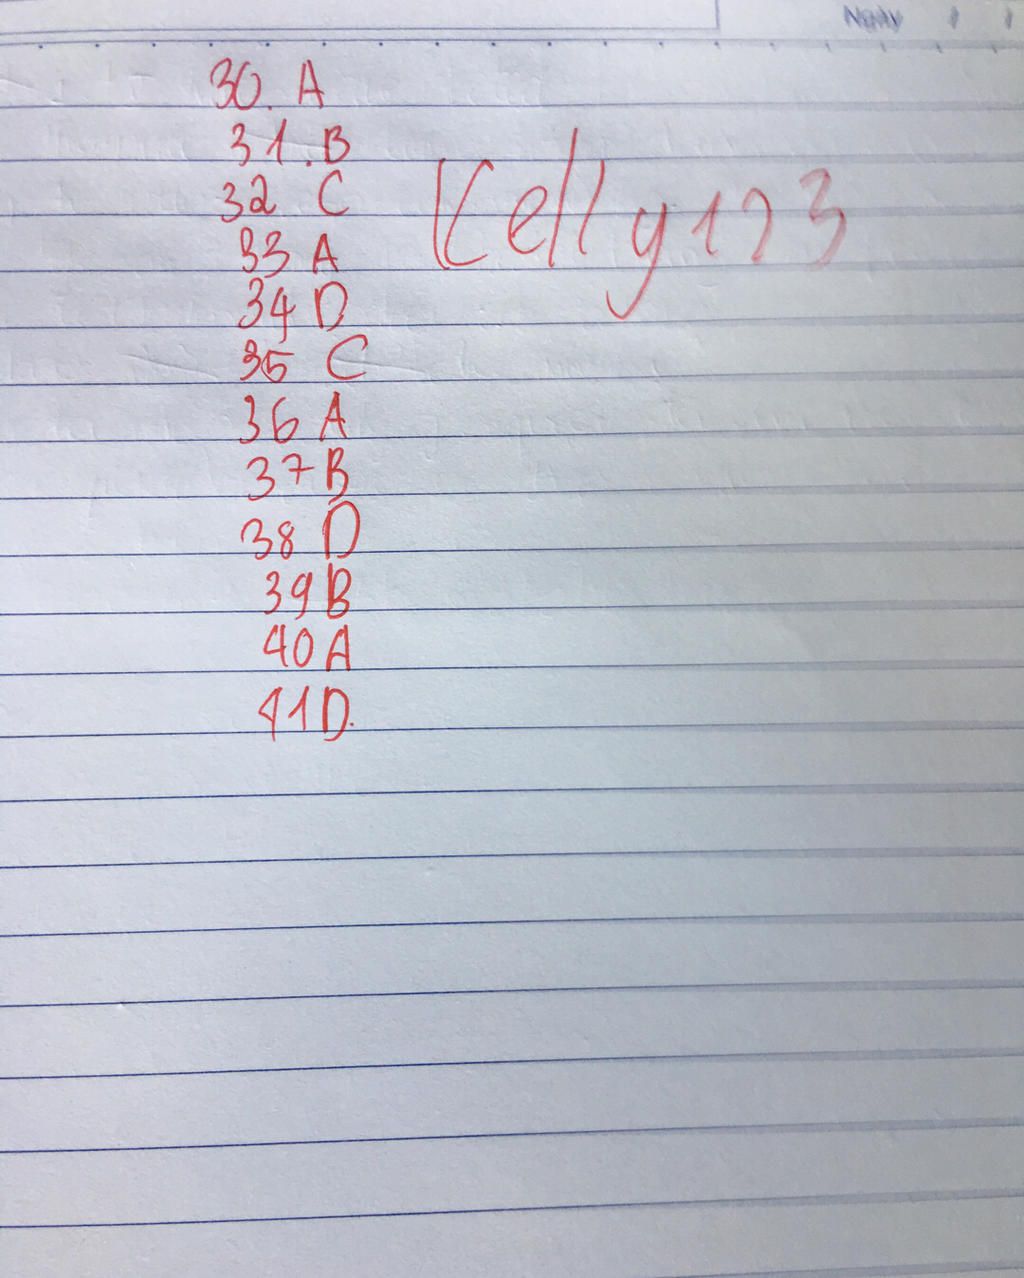 Ngày / /
30. A
31. B
32 C
Kelly123
33 A
34 D
35 C
36 A
37 B
38 D
39 B
40 A
41 D.